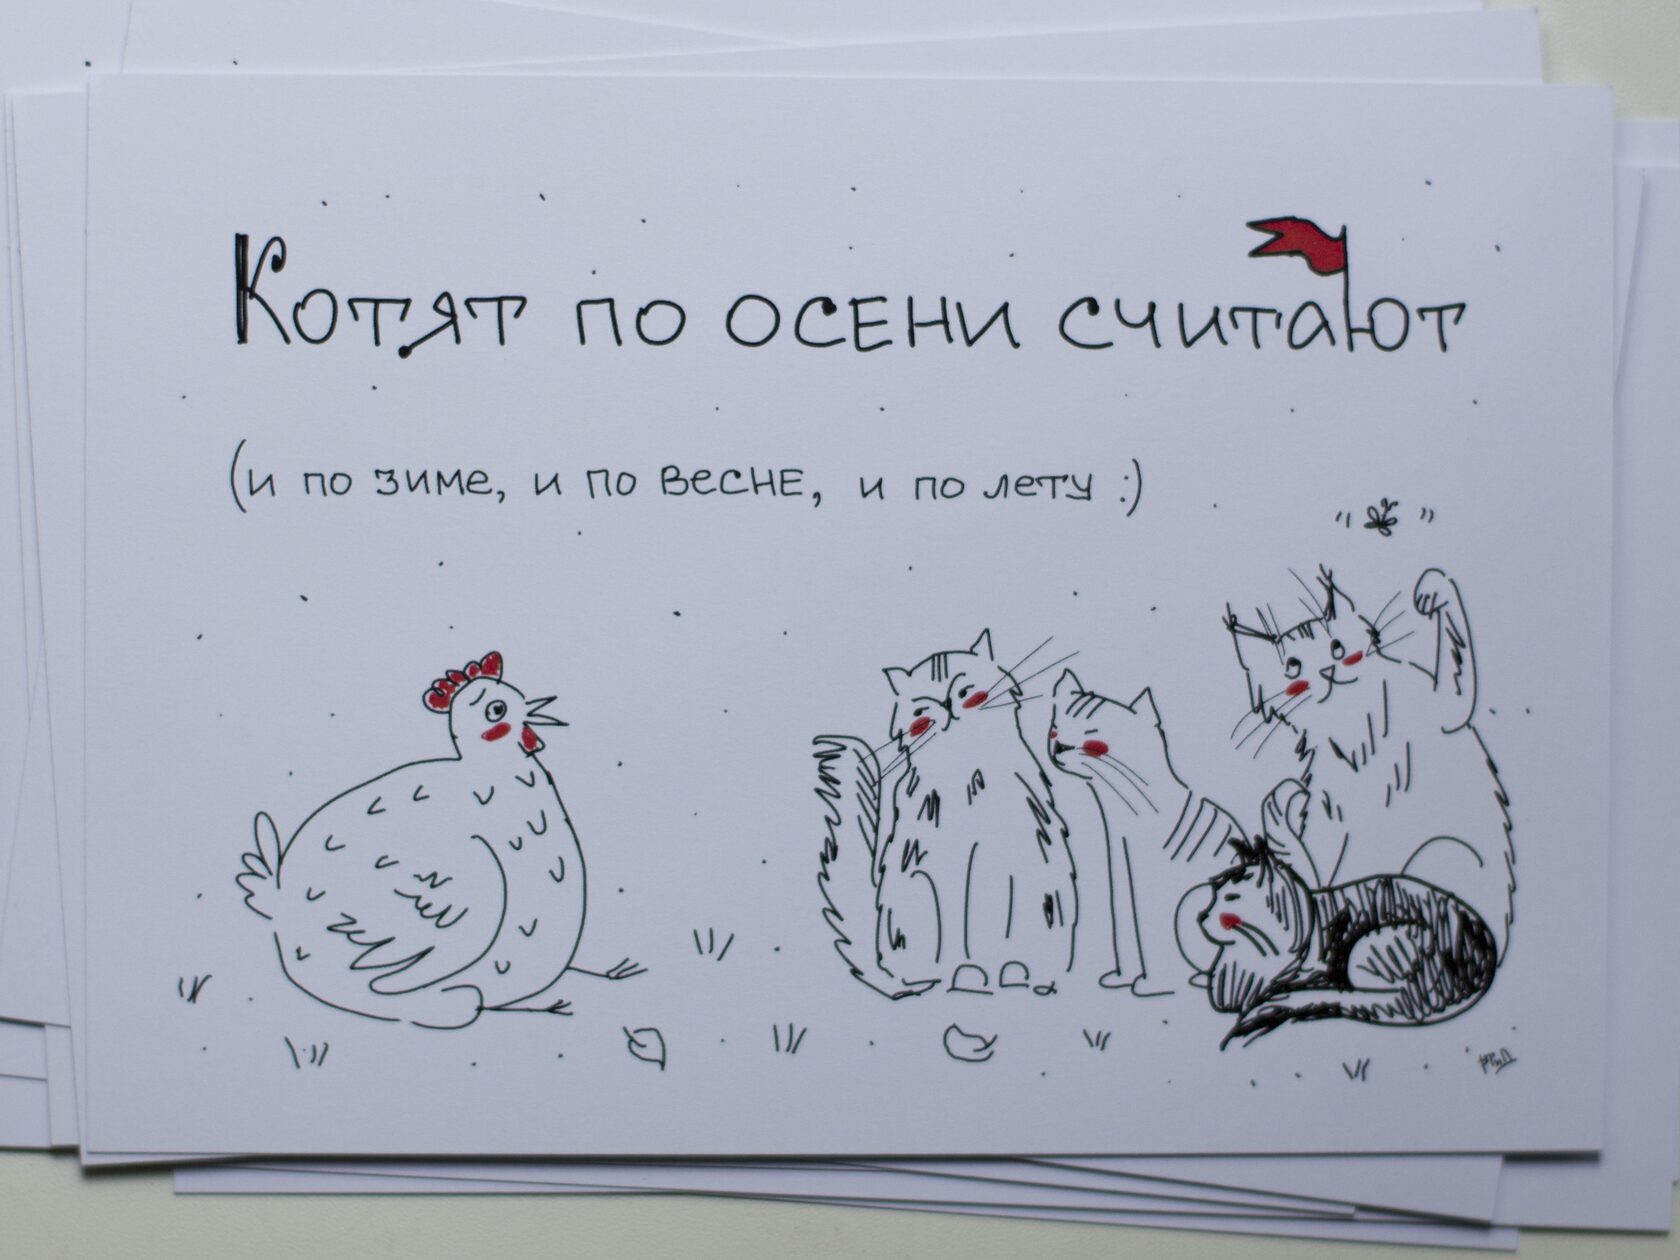 Котят по осени считают
(и по зиме, и по весне, и по лету :)